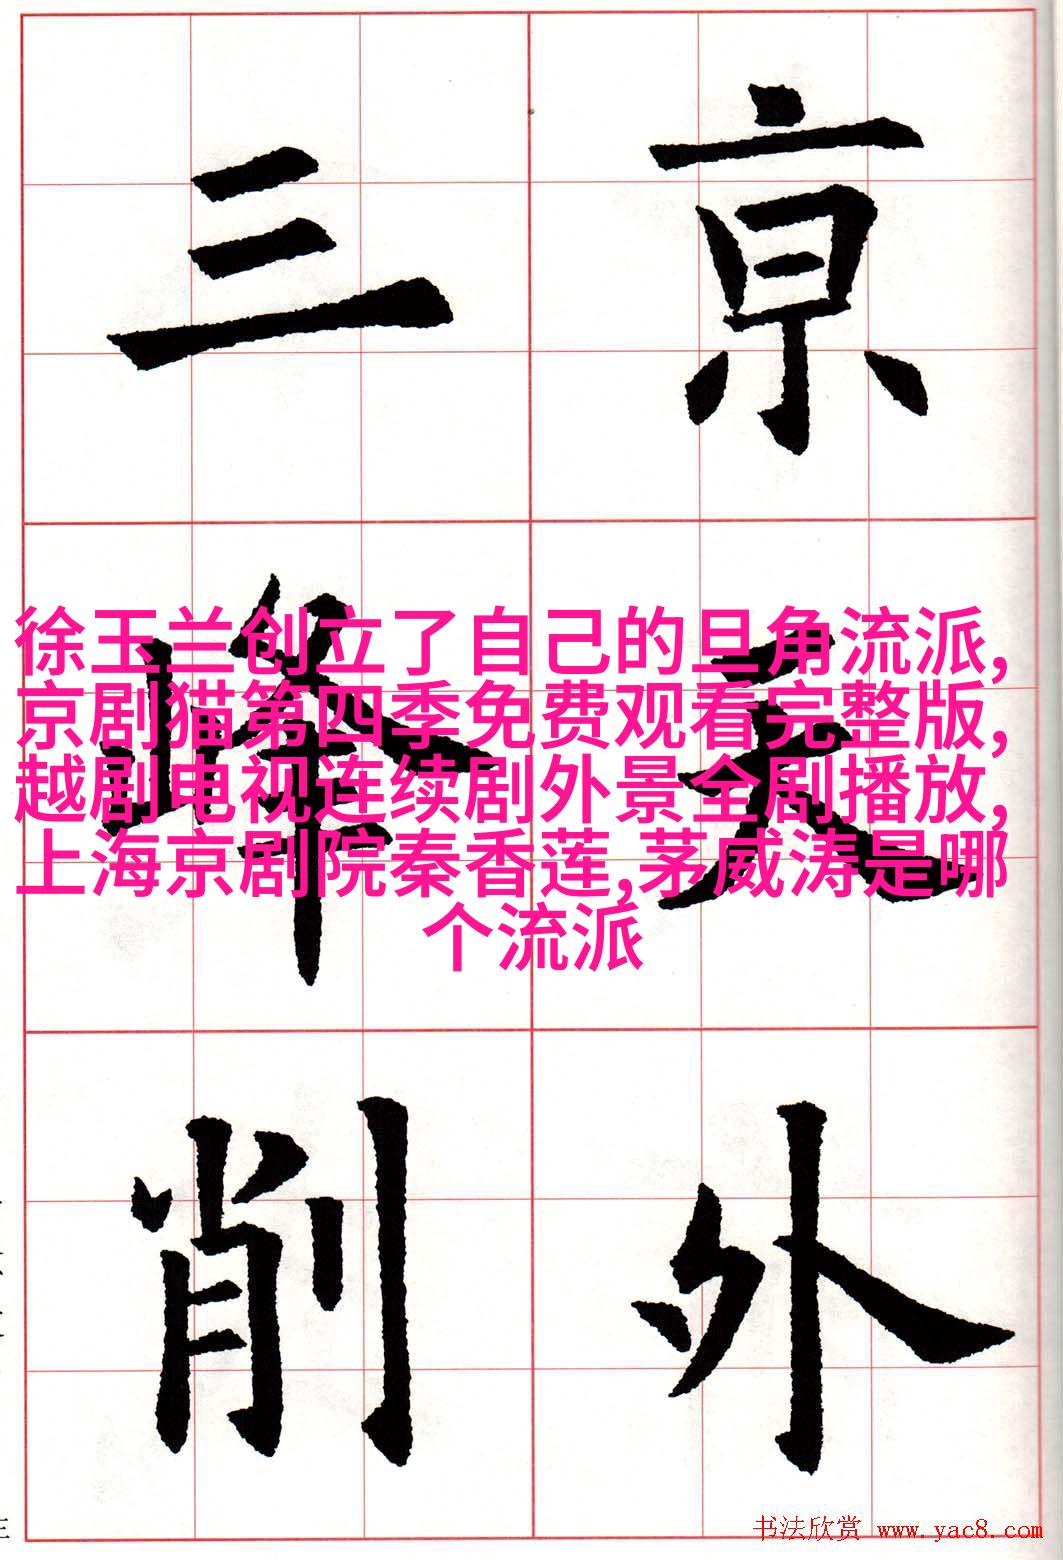 亰天外
三峰削
徐玉兰创立了自己的旦角流派,
京剧猫第四季免费观看完整版,
越剧电视连续剧外景全剧播放,
上海京剧院秦香莲,茅威涛是哪
个流派
书法欣赏 www.yac8.com